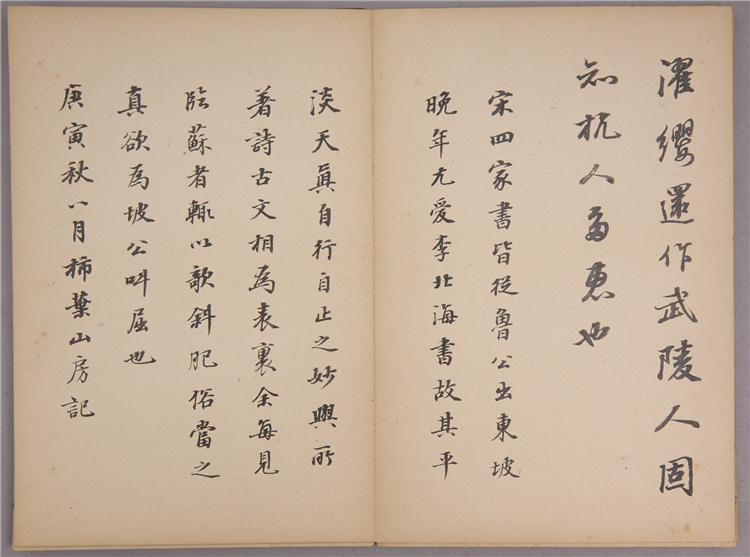 濯纓還作武陵人固
知杭人多惠也
宋四家書皆從魯公出東坡
晚年尤愛李北海書故其平
淡天真自行自止之妙與所
著詩古文相為表裏余每見
臨蘇者輒以欹斜肥俗當之
真欲為坡公叫屈也
庚寅秋八月柿葉山房記